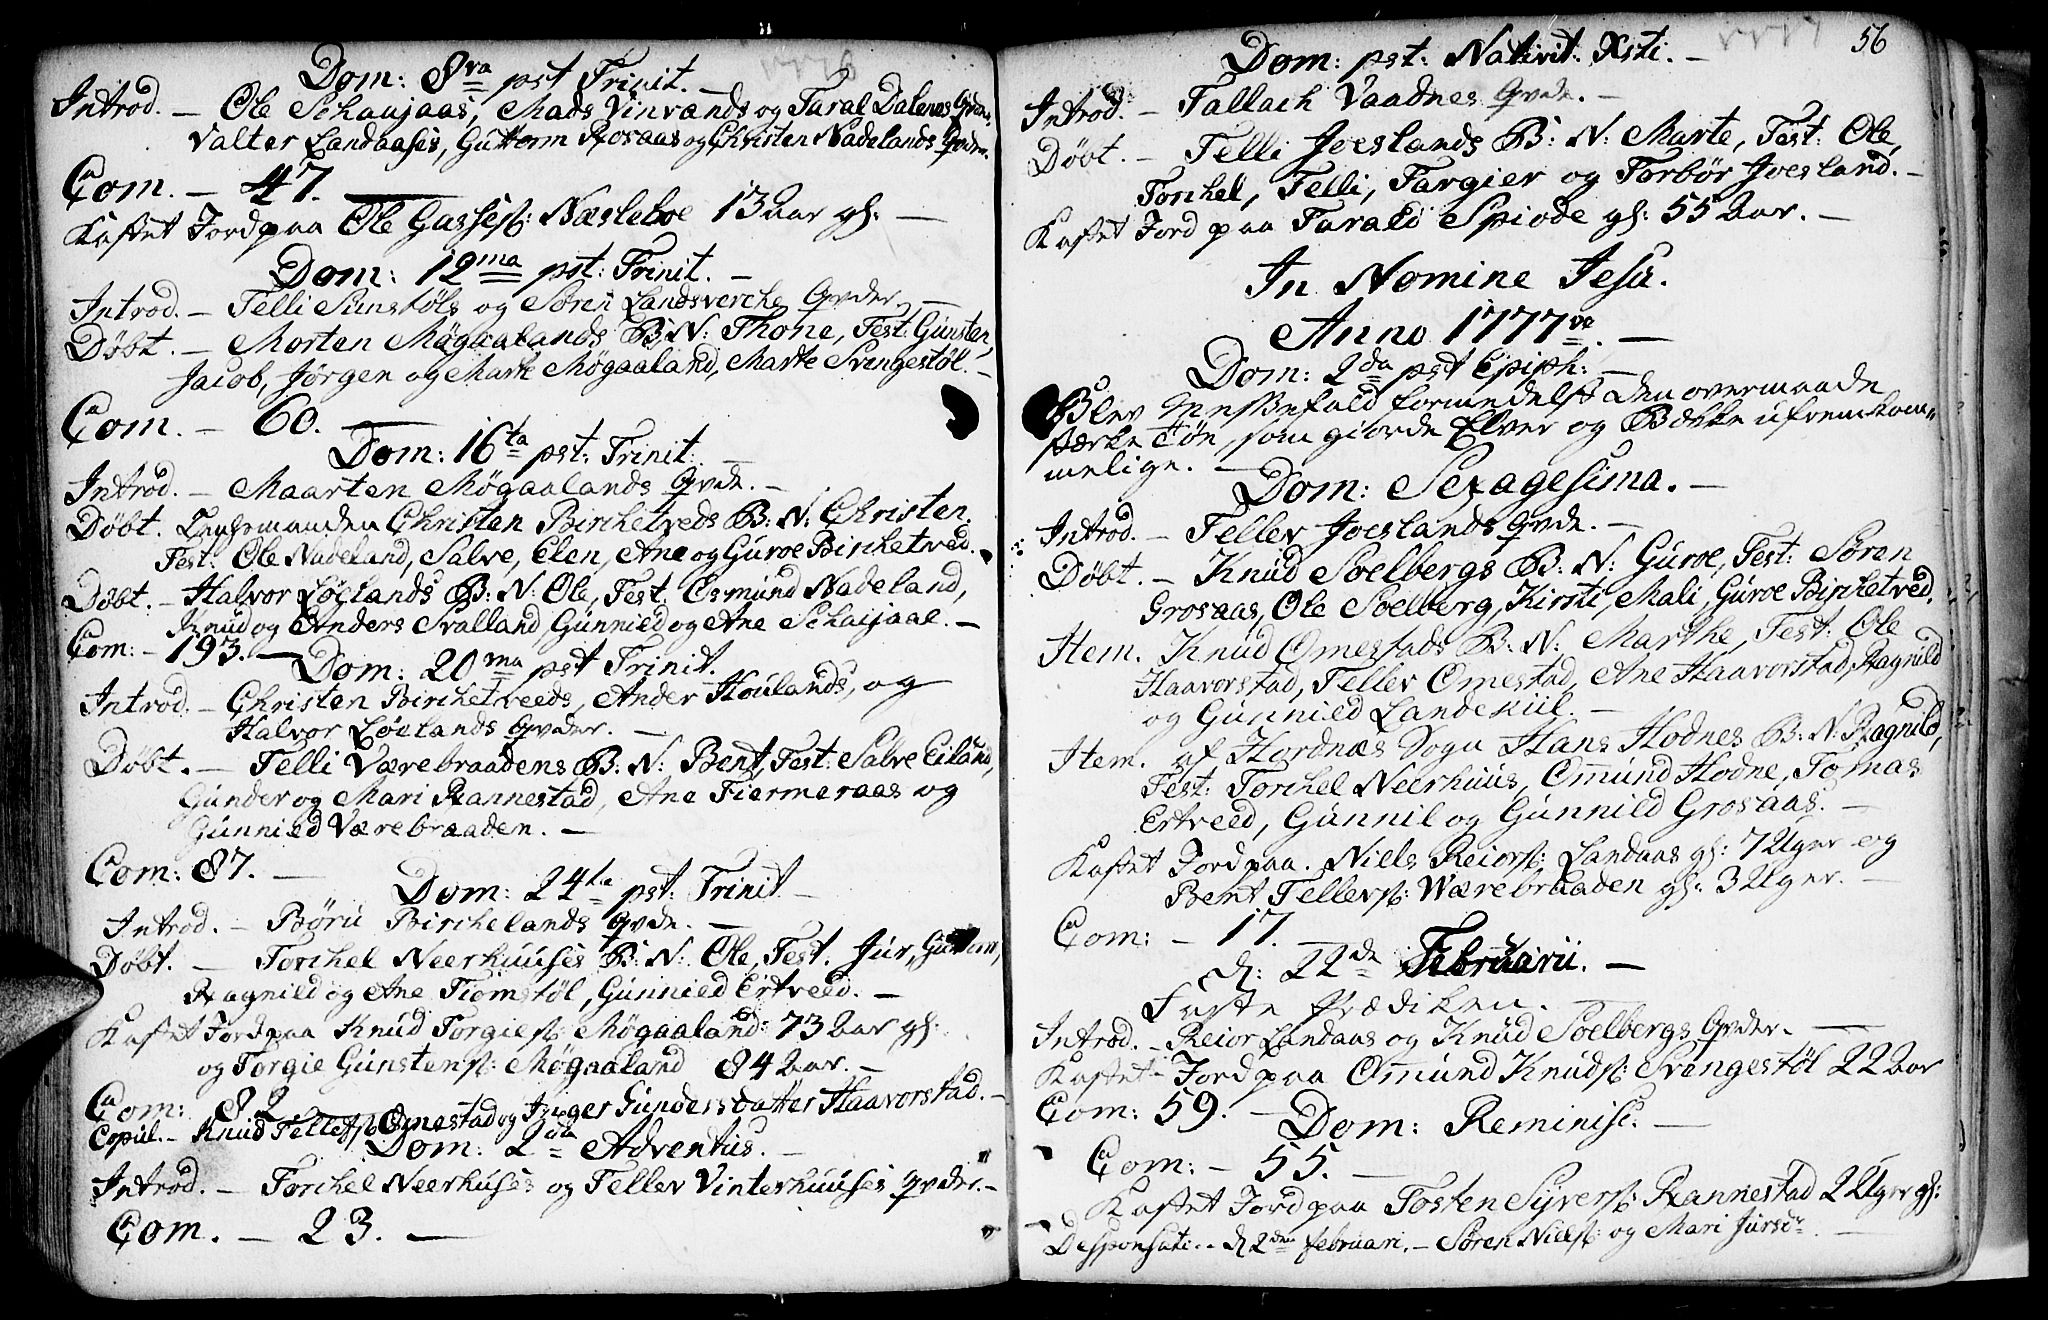 1776
Dom: 8va pst Trinit. -
Introd. - Ole Schaujaas, Mads Vinrands og Taral Dalenes Qvdr.
Valter Landaases, Guttorm Rosaas og Christen Nadelands Qvdr.
Com. - 47. -
Kastet Jord paa Ole Gasses: Næsleboe 13 Aar gl: -
Dom: 12ma pst: Trinit. -
Introd. - Telli Sunstøls og Søren Landsverchs Qvder. -
Døbt. - Morten Møgaalands B: N: Thone, Test: Gunsten,
Jacob, Jørgen og Marte Møgaaland, Marte Svingestøl. -
Com. - 60. -
Dom: 16ta pst: Trinit: -
Introd. - Maarten Møgaalands Qvde. -
Døbt. Lensmanden Christen Birchetveds B: N: Christen.
Test: Ole Nadeland, Salve, Elen, Ane og Guroe Birchetved.
Døbt. - Halvor Løelands B: N: Ole, Test. Osmund Nadeland,
Knud og Anders Svalland, Gunnild og Ane Schaijaae. -
Com: - 193. -
Dom: 20ma pst Trinit.
Introd. - Christen Birchetveeds, Ander Houlands, og
Halvor Løelands Qvder. -
Døbt. - Telli Værebraadens B: N: Bent, Test: Salve Eiland,
Gunder og Mari Rannestad, Ane Fiermeraas og
Gunnild Værebraaden. -
Com: 87. -
Dom: 24ta pst: Trinit -
Introd. - Børu Birchelands Qvde. -
Døbt. - Torchel Neerhuuses B: N: Ole, Test. Jur, Guttorm,
Ragnild og Ane Tiomstøl, Gunnild Ertveed. -
Kastet Jord paa Knud Torgies: Møgaaland: 73 Aar gl:
og Torgie Gunstens: Møgaaland 84 Aar. -
Com: 82
Copul. - Knud Tellefs: Omestad og Inger Gundersdatter Haavorstad. -
Dom: 2da Adventus. -
Introd. - Torchel Neerhuses og Tellev Vinterhuuses Qvder. -
Com. - 23. -
1777
56
Dom: pst: Nativit: Xsti. -
Introd. - Tallach Vaadnes Qvde. -
Døbt. - Telli Joeslands B: N: Marte, Test: Ole,
Torchel, Telli, Targier og Torbør Joesland. -
Kastet Jord paa Tarald Spiode gl: 55 Aar. -
In Nomine Jesu.
Anno 1777de. -
Dom: 2da pst Epiph: -
Blev Messefald formedelst den overmaade
stærke Tøe, som giorde Elver og Bække ufremkom=
melige. -
Dom: Sexagesima. -
Introd. - Tellev Joeslands Qvde. -
Døbt. - Knud Soelbergs B: N: Guroe, Test: Søren
Grosaas, Ole Soelberg, Kirsti, Mali, Guroe Birchetved.
Item. Knud Omestads B: N: Marthe, Test: Ole
Haavorstad, Tellev Omestad, Ane Haavorstad, Ragnild
og Gunnild Landekiil. -
Item. af Hordnæs Sogn Hans Hodnes B: N: Ragnild,
Test: Torchel Neerhuus, Omund Hodne, Tomas
Ertveed, Gunnil og Gunnild Grosaas. -
Kastet Jord paa. Niels Reiors: Landaas gl: 7 Uger og
Bent Tellevs: Wærebraaden gl: 3 Uger. -
Com: - 17. -
d: 22de Februarii. -
Faste Prædiken. -
Introd. - Reior Landaas og Knud Soelbergs Qvder. -
Kastet Jord paa Omund Knuds: Svengestøl 22 Aar
Com: 59. -
Dom: Reminisc: -
Com: - 55. -
Kastet Jord paa Tosten Syvers: Rannestad 2 Uger gl:
Desponsati. - d 2den februari. - Søren Niels: og Mari Jursdr -